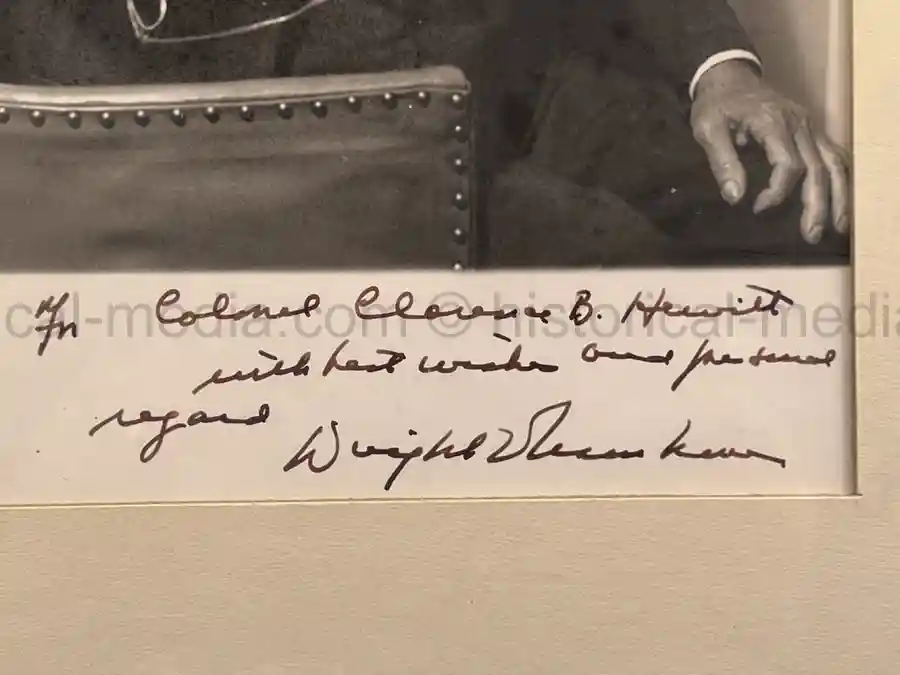 For Colonel Clarence B. Hewitt
with best wishes and personal
regard
Dwight D Eisenhower
cal-media.com © historical-media